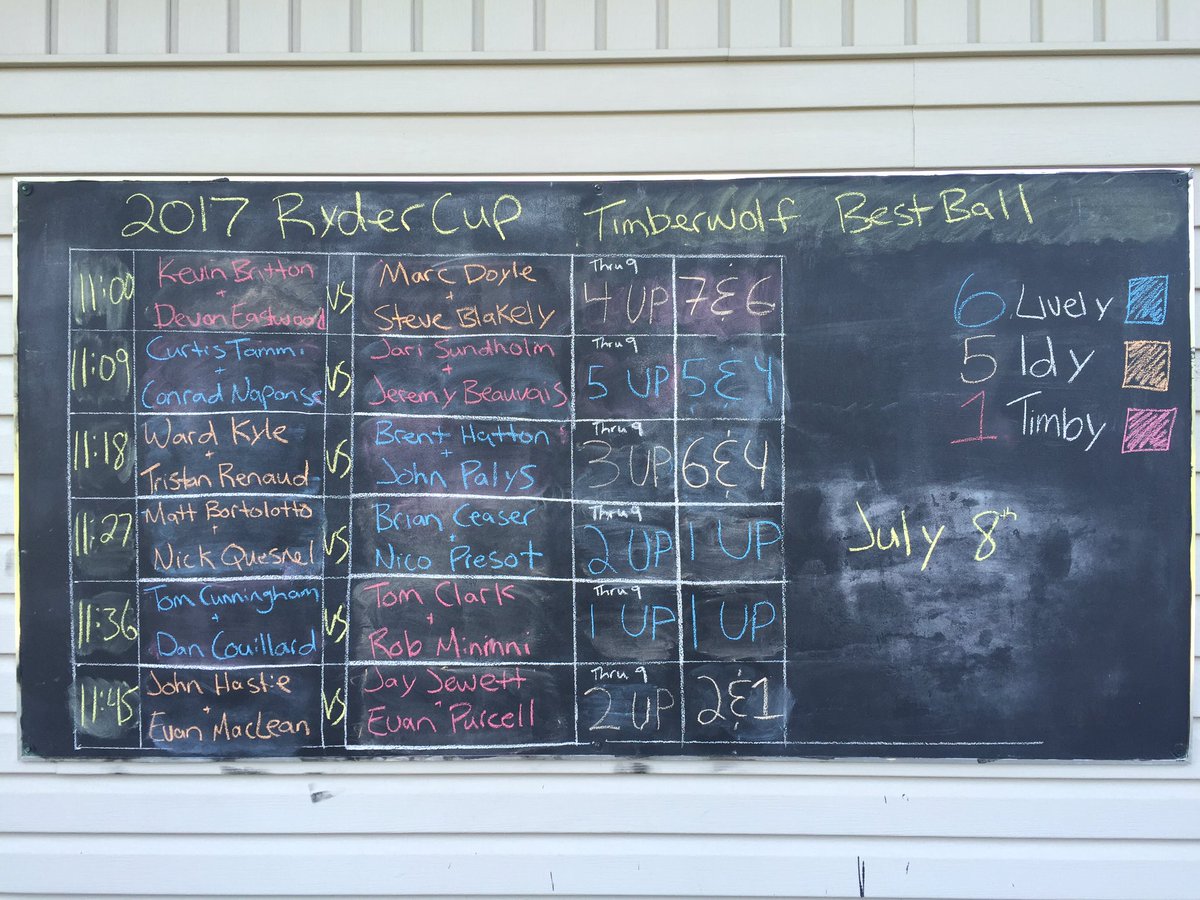 2017 Ryder Cup Timberwolf Best Ball
11:00
Kevin Britton
+
Devon Eastwood
VS
Marc Doyle
+
Steve Blakely
Thru 9
4 UP
7 & 6
11:09
Curtis Tammi
+
Conrad Naponse
VS
Jari Sundholm
+
Jeremy Beauvais
Thru 9
5 UP
5 & 4
11:18
Ward Kyle
+
Tristan Renaud
VS
Brent Hatton
+
John Palys
Thru 9
3 UP
6 & 4
11:27
Matt Bortolotto
+
Nick Quesnel
VS
Brian Ceaser
+
Nico Presot
Thru 9
2 UP
1 UP
11:36
Tom Cunningham
+
Dan Couillard
VS
Tom Clark
+
Rob Minimni
Thru 9
1 UP
1 UP
11:45
John Hastie
+
Evan MacLean
VS
Jay Jewett
+
Evan Purcell
Thru 9
2 UP
2 & 1
6 Lively
5 Idy
1 Timby
July 8th